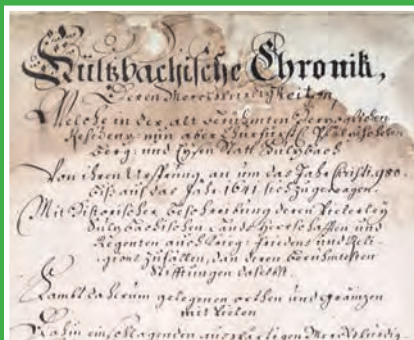 Sültzbachische Chronik,
Deren Merckwürdigkeiten,
Welche in der alt berühmten Herzoglichen
Residenz: nun aber Churfürstl. Pfältzischen
Berg: und Eysen Statt Sulzbach
Von ihren Ursprung, an um das Jahr Christi 980.
biß auf das Jahr 1641 sich zugetragen.
Mit Historischer beschreibung deren Vielerley
Sulzbachischen Landt Herrschafften und
Regenten auch Krieg: Friedens und Reli-
gions Zufällen, dan deren berühmtesten
Stifftungen daselbst.
Sambt da herum gelegenen orthen und gränzen
mit Vielen
Dahin einschlagenden auswärtigen Merckwürdig-